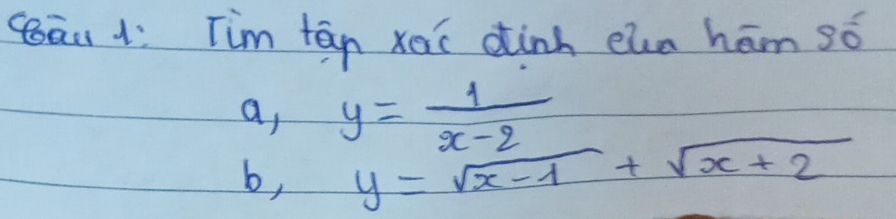 Câu 1: Tìm tập xác định của hàm số
a, y = \frac{1}{x-2}
b, y = \sqrt{x-1} + \sqrt{x+2}